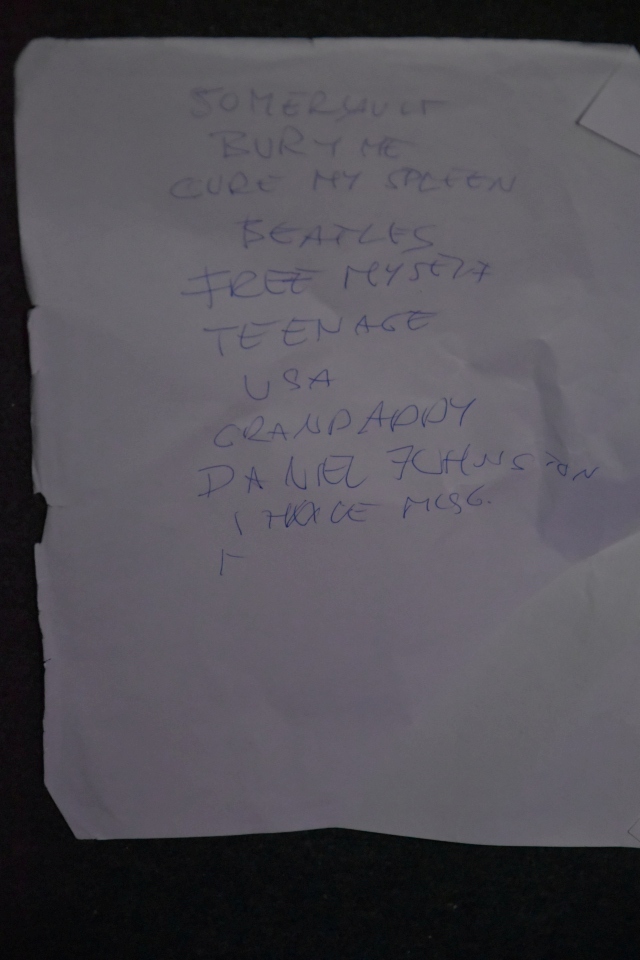 SOMERVAULT
BURY ME
CURE MY SPLEEN
BEATLES
FREE MYSELF
TEENAGE
USA
GRANDADDY
DANIEL JOHNSTON
I